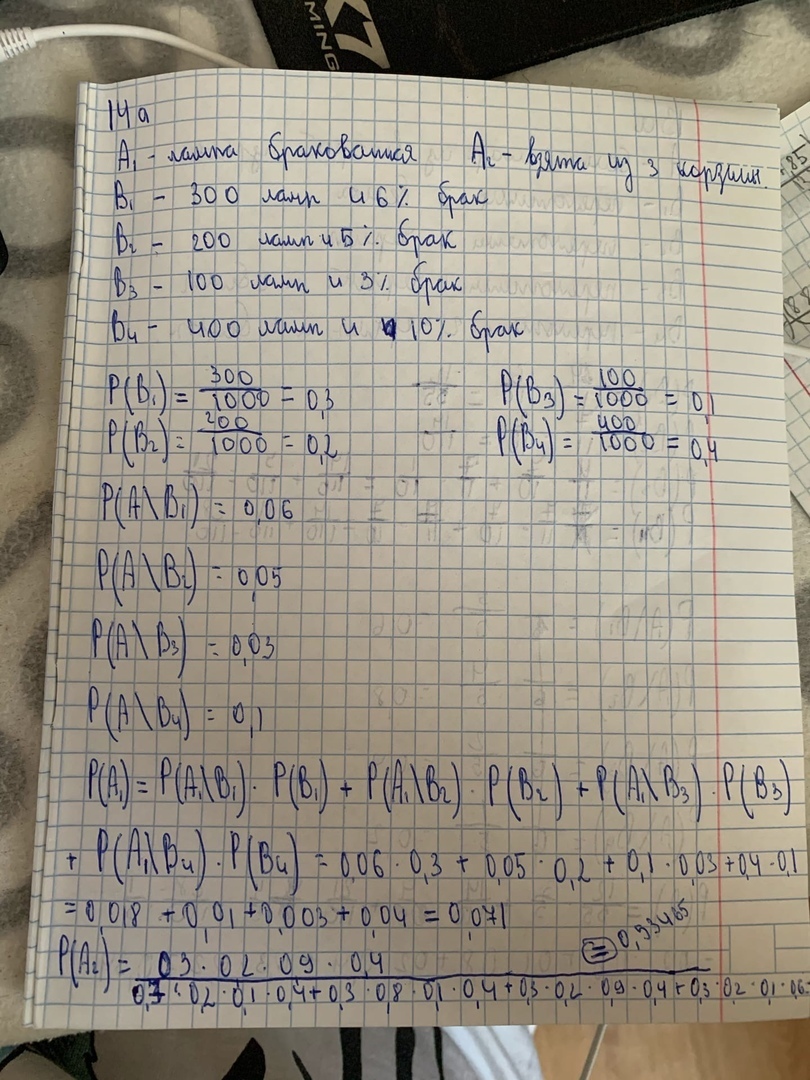 K7
MING
14а
A₁ - лампа бракованная A₂ - взята из 3 корзины.
B₁ - 300 ламп и 6% брак
B₂ - 200 ламп и 5% брак
B₃ - 100 ламп и 3% брак
B₄ - 400 ламп и 10% брак
P(B₁) = 300/1000 = 0,3 P(B₃) = 100/1000 = 0,1
P(B₂) = 200/1000 = 0,2 P(B₄) = 400/1000 = 0,4
P(A\B₁) = 0,06
P(A\B₂) = 0,05
P(A\B₃) = 0,03
P(A\B₄) = 0,1
P(A₁) = P(A₁\B₁) · P(B₁) + P(A₁\B₂) · P(B₂) + P(A₁\B₃) · P(B₃)
+ P(A₁\B₄) · P(B₄) = 0,06 · 0,3 + 0,05 · 0,2 + 0,1 · 0,03 + 0,4 · 0,1
= 0,018 + 0,01 + 0,003 + 0,04 = 0,071
P(A₂) = 03 · 02 · 09 · 0,4 = 0,33465
0,7 · 0,2 · 0,1 · 0,4 + 0,3 · 0,8 · 0,1 · 0,4 + 0,3 · 0,2 · 0,9 · 0,4 + 0,3 · 0,2 · 0,1 · 0,6